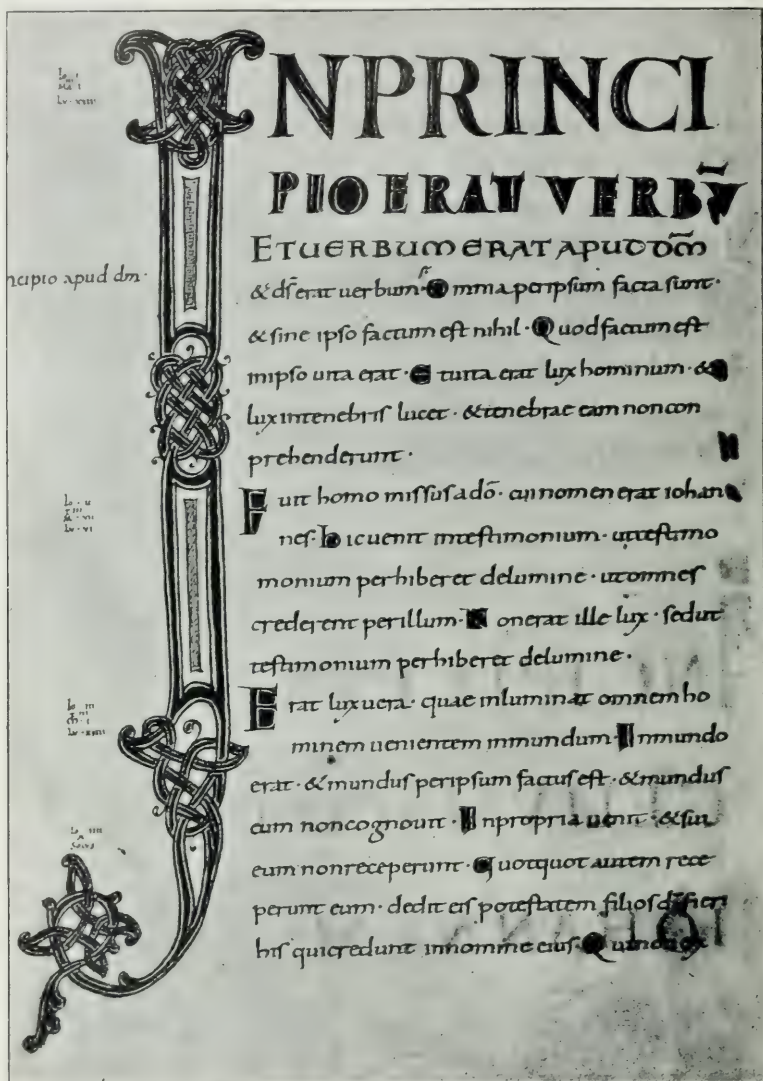 INPRINCI
PIO ERAT VERBŪ
ET UERBUM ERAT APUD DM̄
ncipio apud dm̄·
& dſ̄ erat uerbum· Omnia peripſum facta ſunt·
& ſine ipſo factum eſt nihil· Quod factum eſt
inipſo uita erat· Et uita erat lux hominum· &
lux intenebriſ lucet· & tenebrae eam non con
prehenderunt·
Fuit homo miſſuſ adō· cui nomen erat iohan
neſ· hic uenit inteſtimonium· utteſtimo
monium perhiberet delumine· utomneſ
crederent perillum· Non erat ille lux· ſed ut
teſtimonium perhiberet delumine·
Erat lux uera· quae inluminat omnem ho
minem uenientem inmundum· Inmundo
erat· & munduſ peripſum factuſ eſt· & munduſ
eum noncognouit· Inpropria uenit· & ſui
eum nonreceperunt· Quotquot autem rece
perunt eum· dedit eiſ poteſtatem filioſ dī fieri
hiſ quicredunt innomine eiuſ· Qui non ex